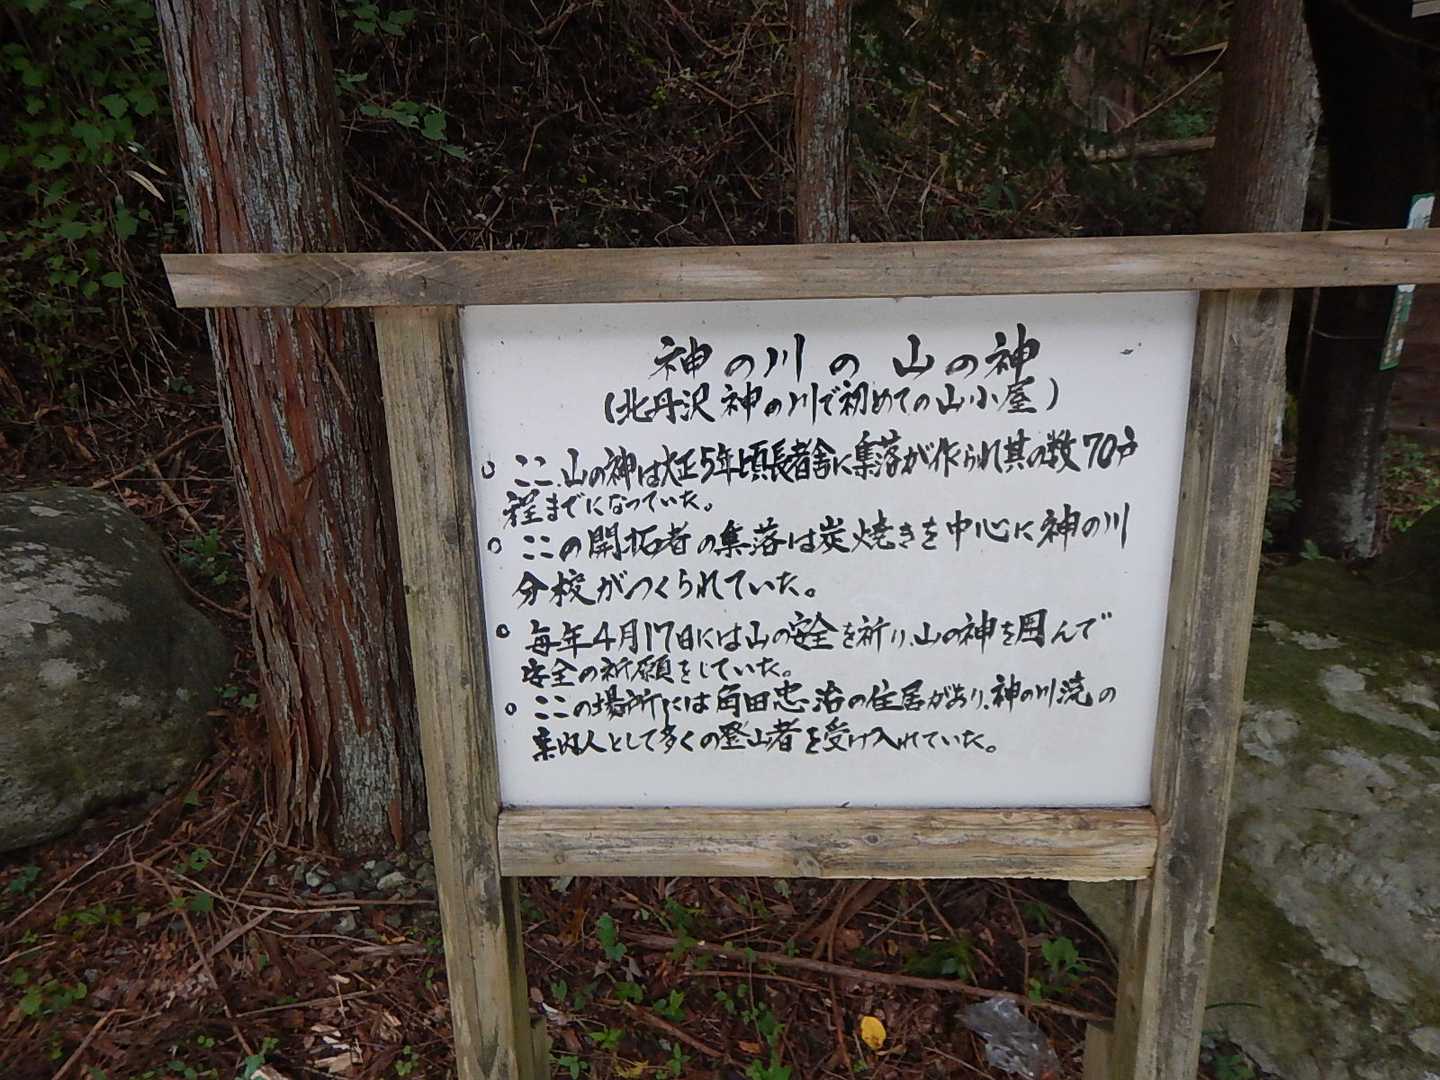 神の川の山の神
(北丹沢 神の川で初めての山小屋)
○ ここ、山の神は大正5年頃長者舎に集落が作られ其の数70戸
程までになっていた。
○ ここの開拓者の集落は炭焼きを中心に神の川
分校がつくられていた。
○ 毎年4月17日には山の安全を祈り、山の神を囲んで
安全の祈願をしていた。
○ ここの場所には角田忠治の住居があり、神の川流の
案内人として多くの登山者を受け入れていた。